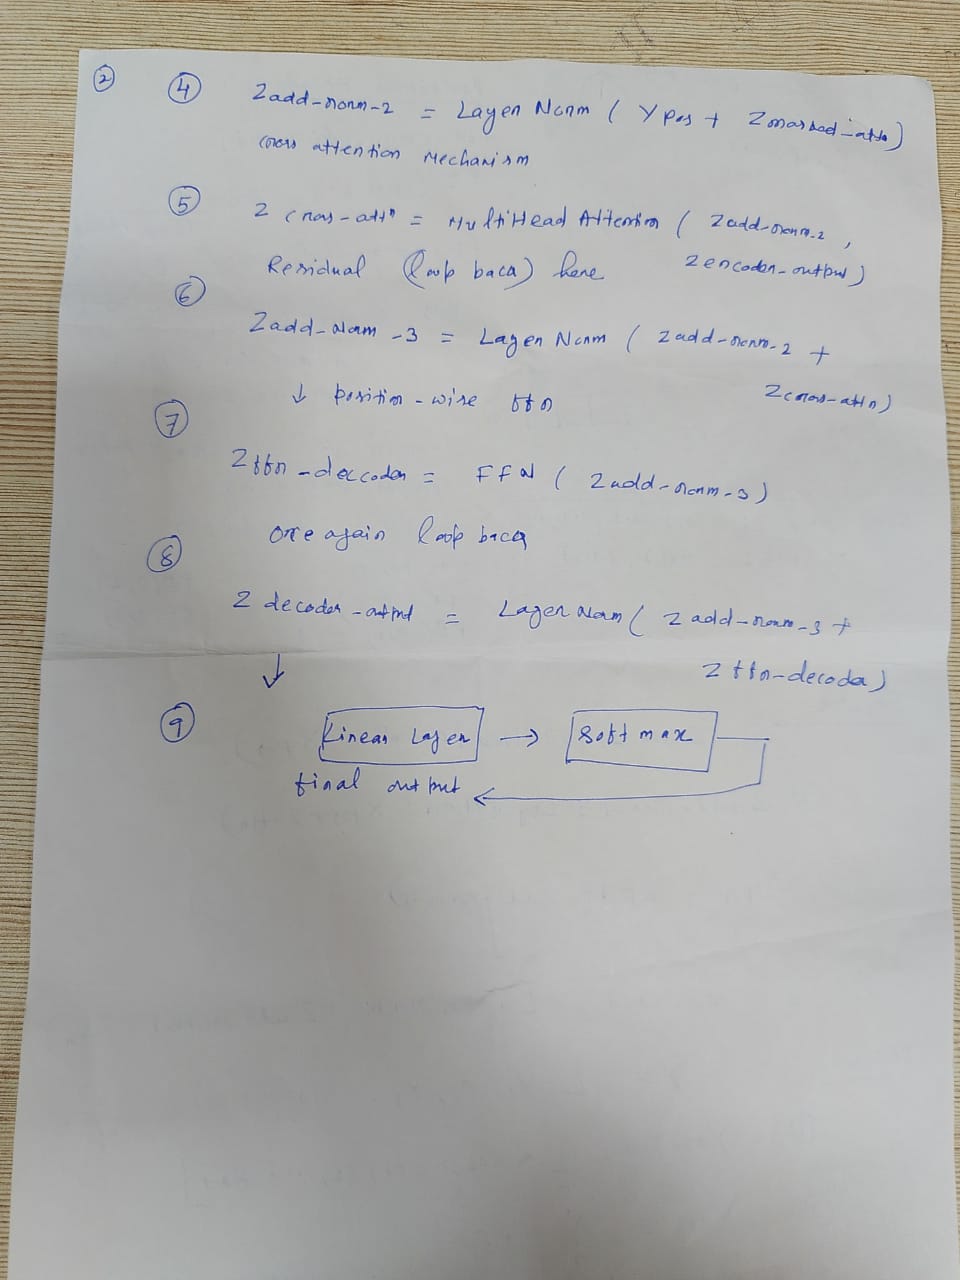 2
4 Zadd-norm-2 = Layer Norm ( Y pos + Z masked-attn )
cross attention Mechanism
5 Z cross-attn = MultiHead Attention ( Zadd-norm-2 ,
Zencoder-output )
Residual (loop back) here
6
Zadd-Norm-3 = Layer Norm ( Zadd-norm-2 +
Zcross-attn )
↓ position-wise ffn
7
Zffn-deccoder = FFN ( Zadd-norm-3 )
once again loop back
8
Z decoder-output = Layer Norm ( Zadd-norm-3 +
Z ffn-decoder )
↓
9 Linear Layer → Softmax
final output ←